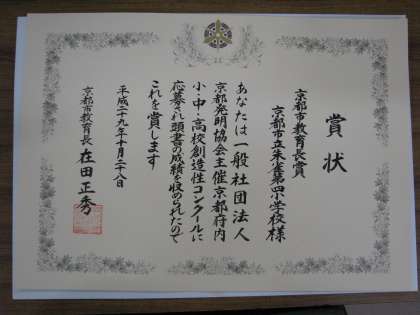 賞状
京都市教育長賞
京都市立朱雀第四小学校様
あなたは一般社団法人
京都発明協会主催京都府内
小・中・高校創造性コンクールに
応募され頭書の成績を収められたので
これを賞します
平成二十九年十月二十八日
京都市教育長 在田正秀